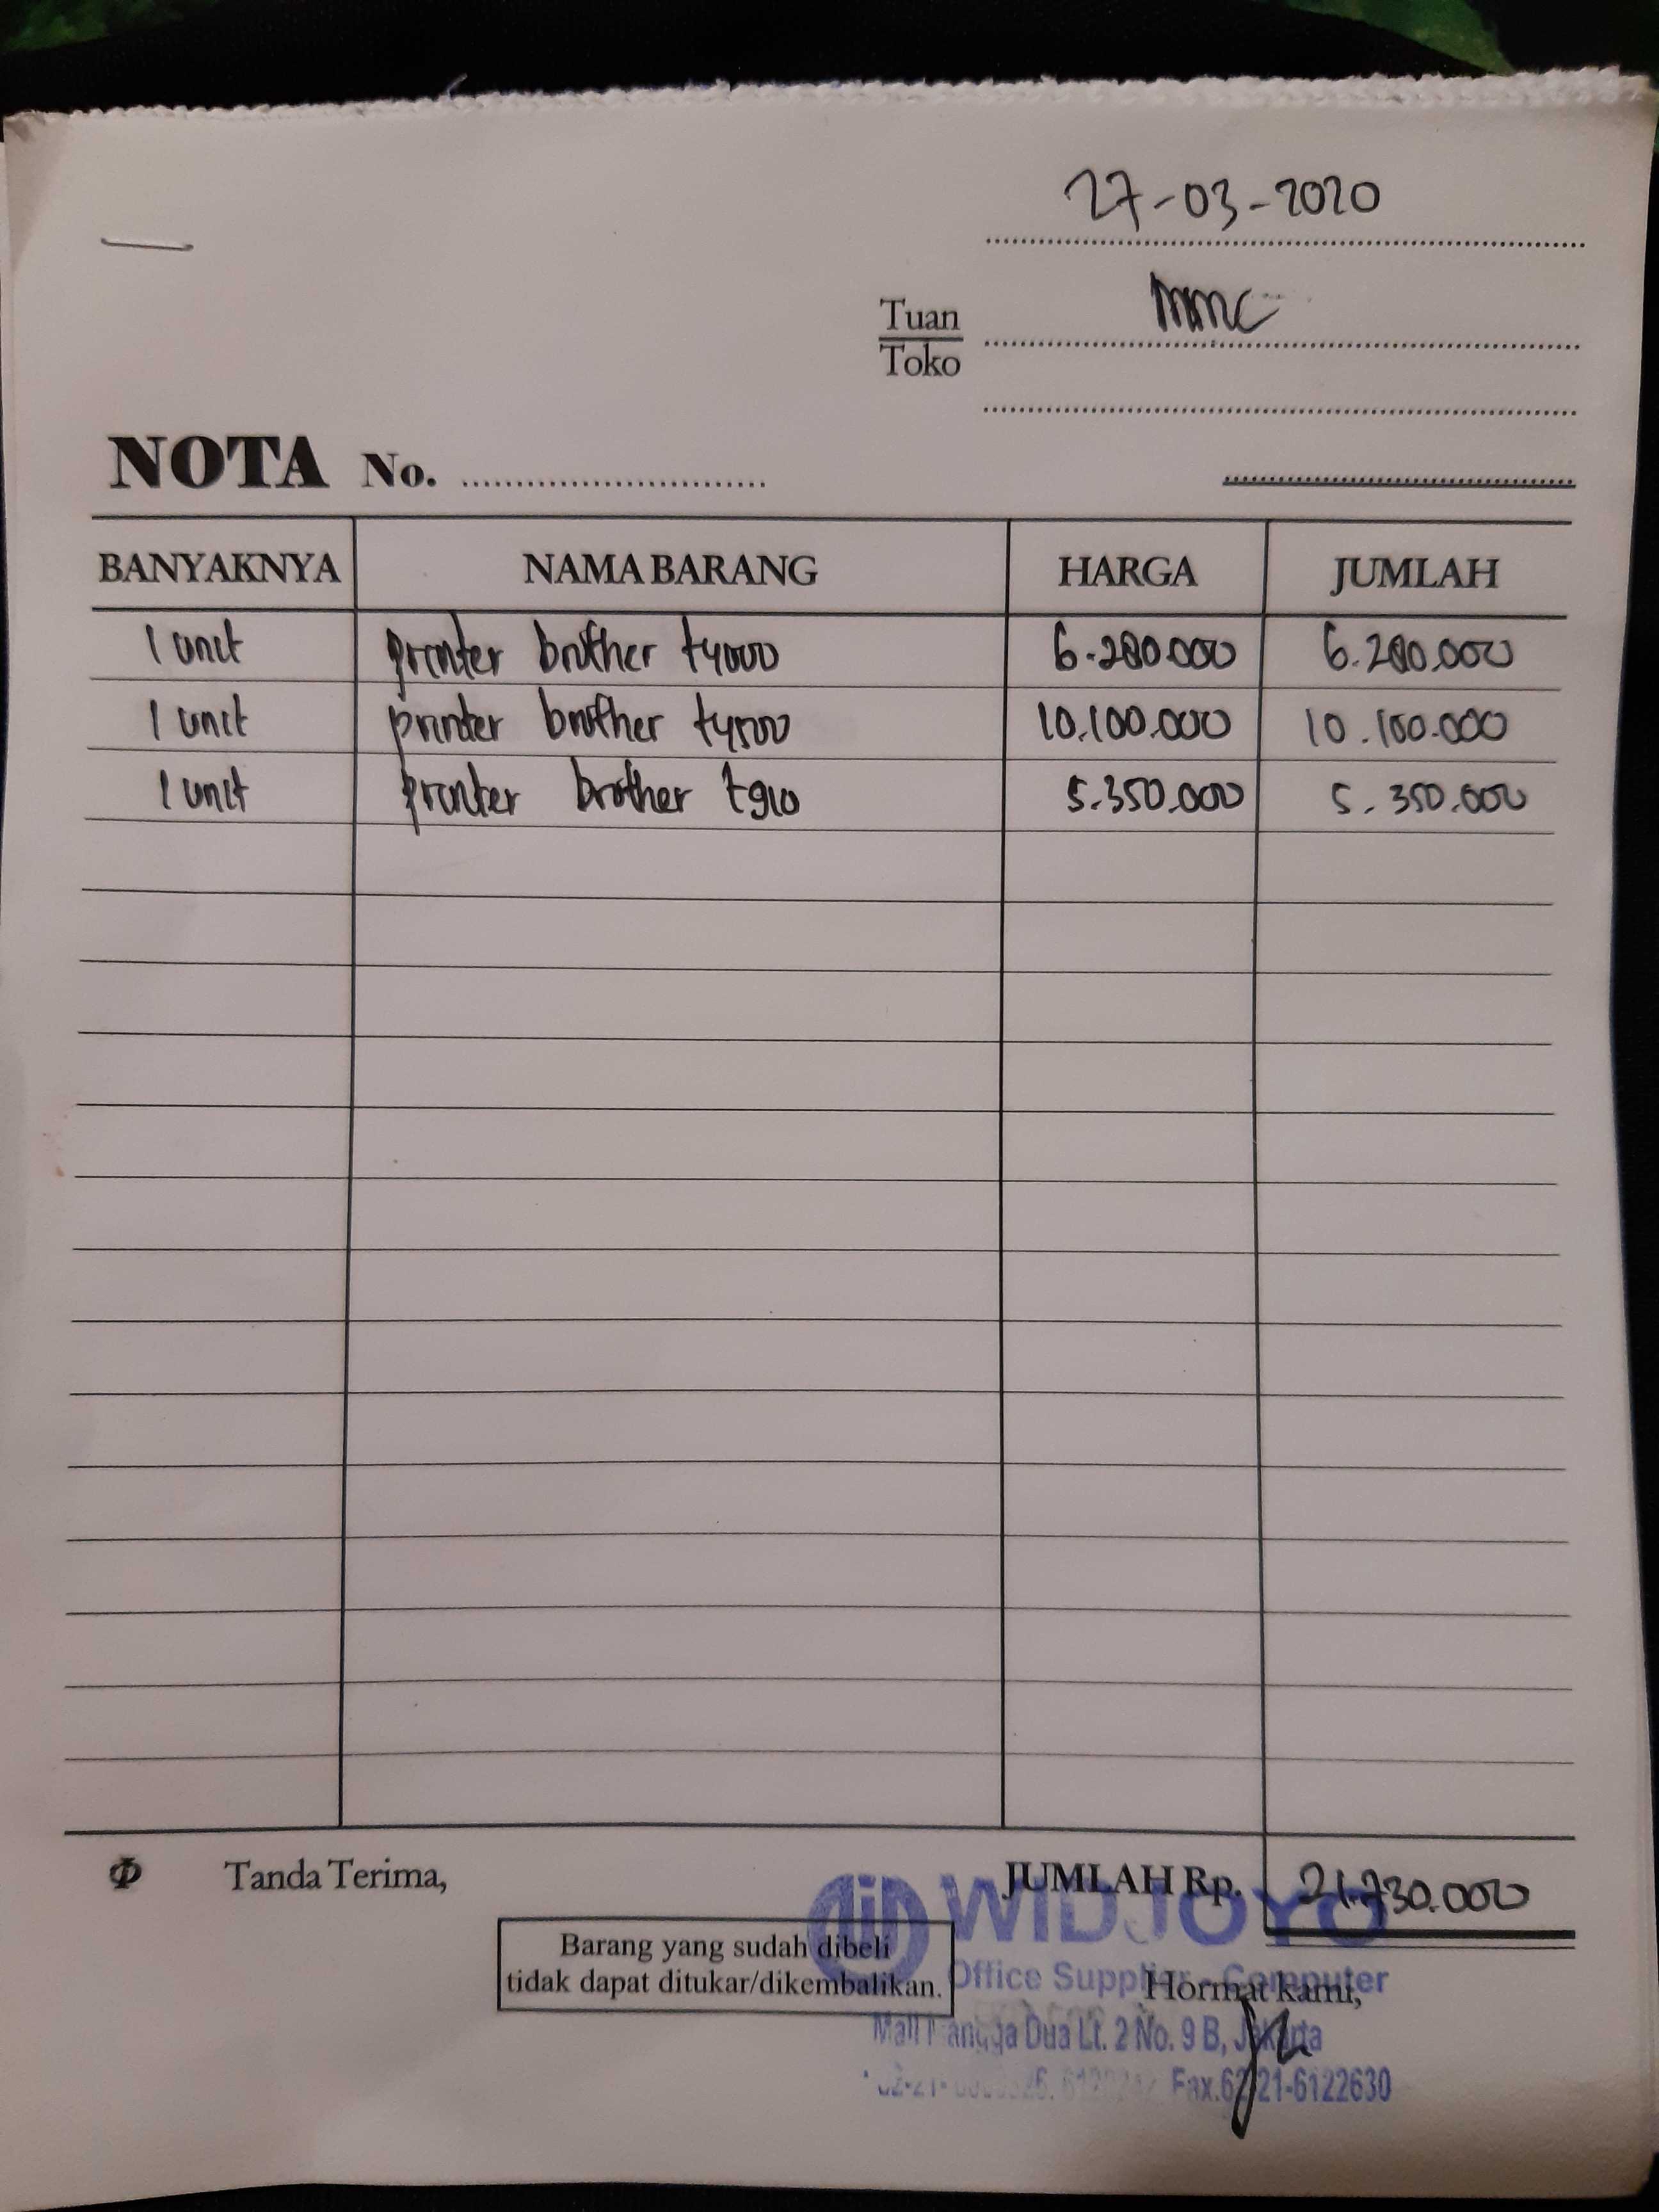 27-03-2020
Tuan mmc
Toko
NOTA No.
BANYAKNYA NAMA BARANG HARGA JUMLAH
1 unit printer brother t4000 6.280.000 6.280.000
1 unit printer brother t4500 10.100.000 10.100.000
1 unit printer brother t910 5.350.000 5.350.000
Tanda Terima, JUMLAH Rp. 21.730.000
WIDJOYO
Barang yang sudah dibeli
tidak dapat ditukar/dikembalikan.
Office Supplier - Computer
Hormat kami,
Mall Mangga Dua Lt. 2 No. 9 B, Jakarta
Fax.62-21-6122630